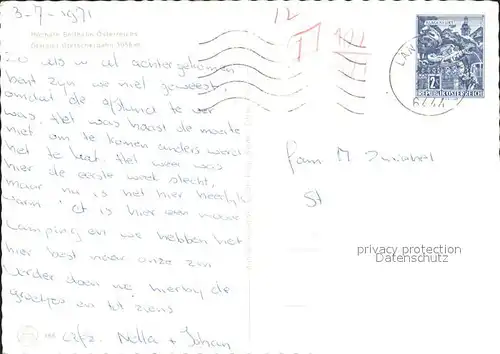 3-7-1971
Höchste Seilbahn Österreichs
Zo als u al achtergekomen
bent zijn we niet geweest,
omdat de afstand te ver
was. Het was haast de moeite
niet om te komen anders werd
het te laat. Het weer was
hier de eerste week slecht,
maar nu is het hier heerlijk
warm 't is hier een mooie
camping en we hebben het
hier best naar onze zin
Verder doen we hierbij de
groetjes en tot ziens
Nella + Johan
12
T
Fam M
St
KLAGENFURT
2 S
REPUBLIK ÖSTERREICH
6444
privacy protection
Datenschutz